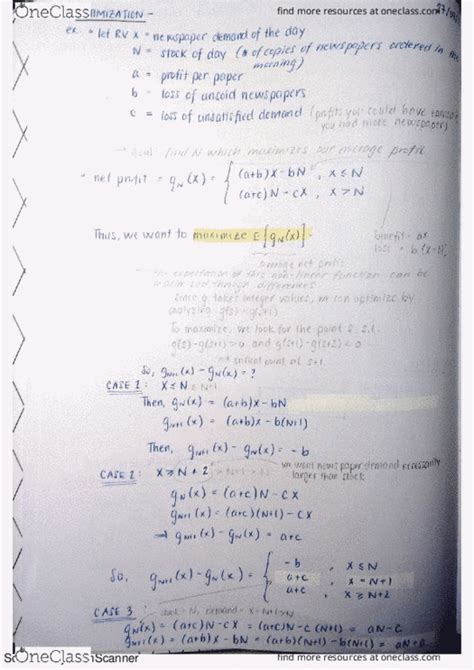 OneClass
find more resources at oneclass.com
OPTIMIZATION -
ex. • let RV X = newspaper demand of the day
N = stock of day (# of copies of newspapers ordered in the morning)
a = profit per paper
b = loss of unsold newspapers
c = loss of unsatisfied demand (profits you could have
you had more newspaper)
→ goal find N which maximizes our average profit
• net profit = g_N(X) = { (a+b)X - bN , X ≤ N
(a+c)N - cX , X > N
Thus, we want to maximize E[g_N(X)].
benefit = aX
average net profit
expectation of this non-linear function can be
through differences
since g takes integer values, we can optimize by
analyzing g(s) - g(s+1)
To maximize, we look for the point s s.t.
g(s) - g(s+1) > 0 and g(s+1) - g(s+2) < 0
→ critical point at s+1.
So, g_{N+1}(X) - g_N(X) = ?
CASE 1: X ≤ N ≤ N+1
Then, g_N(X) = (a+b)X - bN
g_{N+1}(X) = (a+b)X - b(N+1)
Then, g_{N+1}(X) - g_N(X) = -b
CASE 2: X ≥ N + 2
we want newspaper demand necessarily
larger than stock
g_N(X) = (a+c)N - cX
g_{N+1}(X) = (a+c)(N+1) - cX
⇒ g_{N+1}(X) - g_N(X) = a+c
So, g_{N+1}(X) - g_N(X) = { -b , X ≤ N
a+c , X = N+1
a+c , X ≥ N+2
CASE 3: stock = N, demand = X = N+1 > N
g_N(X) = (a+c)N - cX = (a+c)N - c(N+1) = aN - c
g_{N+1}(X) = (a+b)X - bN = (a+b)(N+1) - b(N+1) = aN + a
OneClass
Scanner
find more resources at oneclass.com